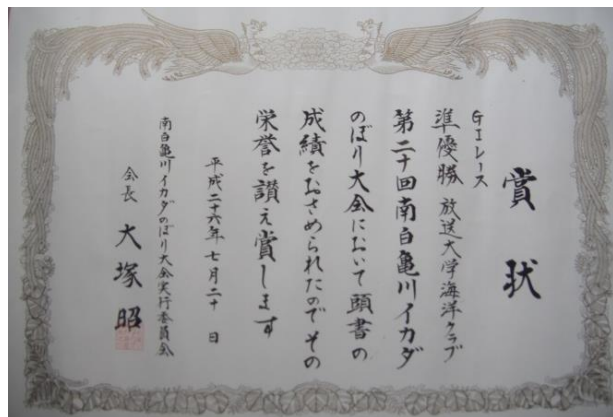 賞状
GIレース
準優勝 放送大学海洋クラブ
第二十回南白亀川イカダ
のぼり大会において頭書の
成績をおさめられたので その
栄誉を讃え賞します
平成二十六年七月二十 日
南白亀川イカダのぼり大会実行委員会
会長 大塚 昭